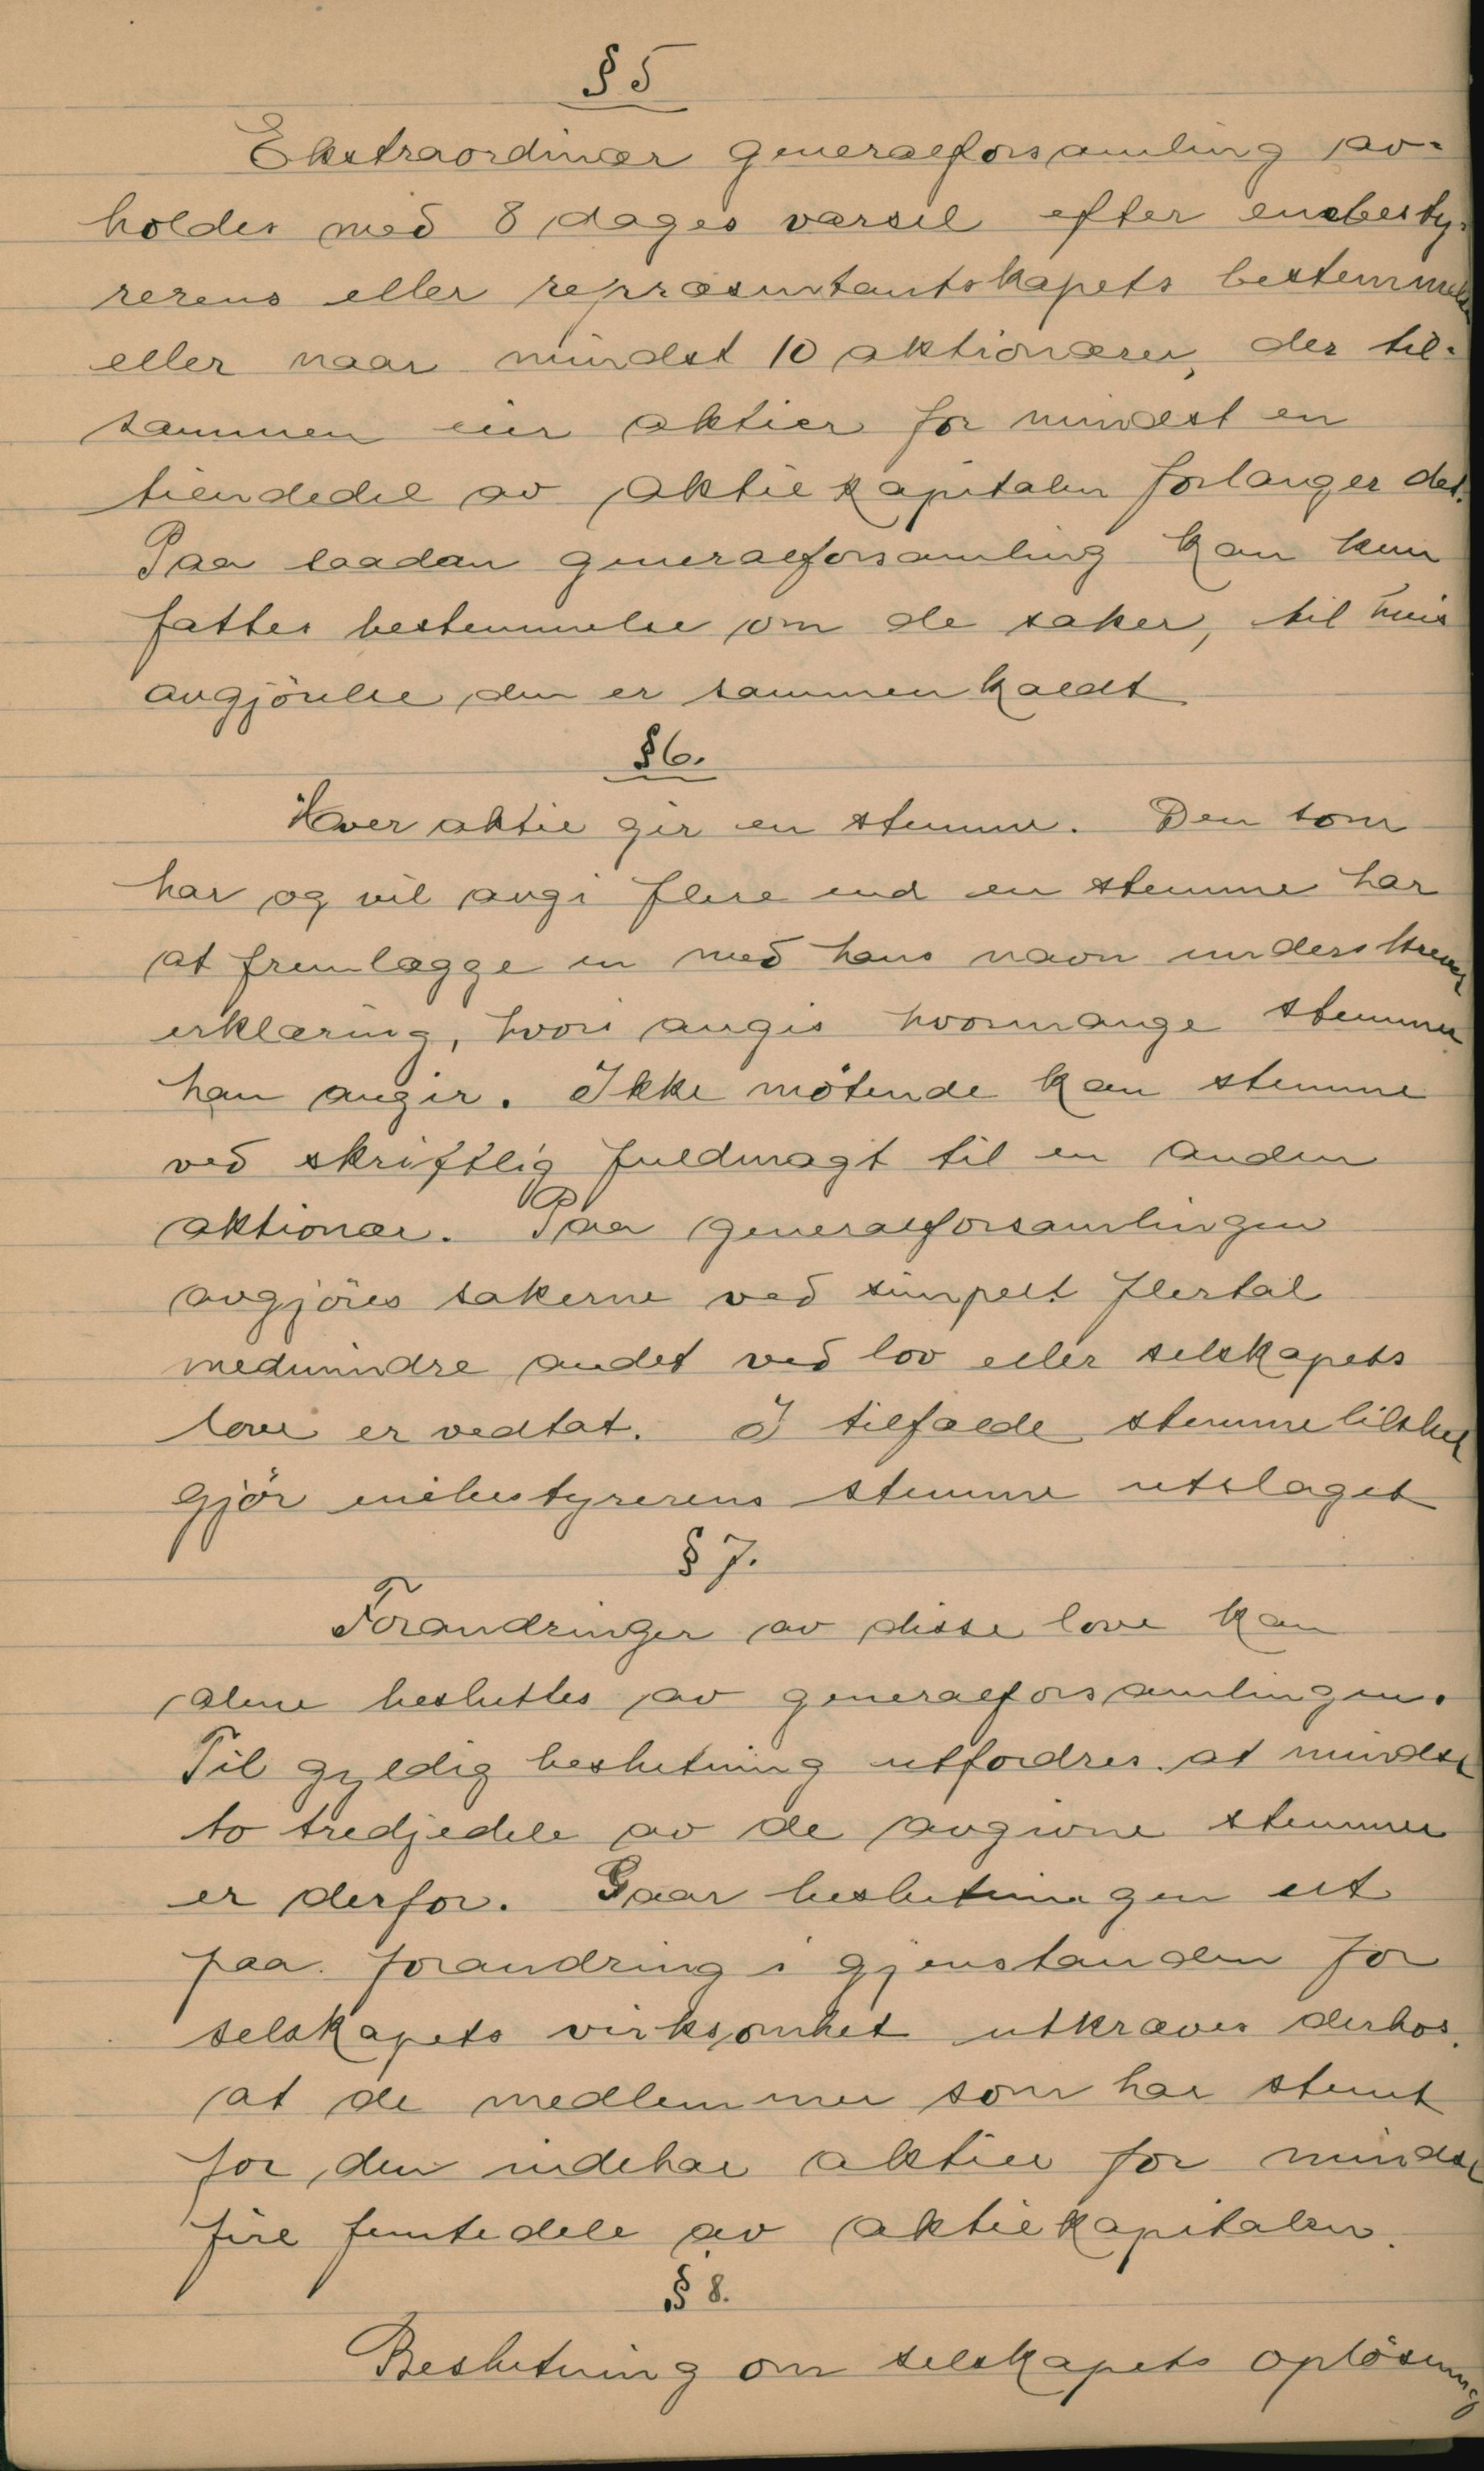 § 5
Ekstraordinær generalforsamling av-
holdes med 8 dages varsel efter enebesty-
rerens eller repræsentantskapets bestemmelse
eller naar mindst 10 aktionærer, der til-
sammen eier aktier for mindst en
tiendedel av aktiekapitalen forlanger det.
Paa saadan generalforsamling kan kun
fattes bestemmelse om de saker, til hvis
avgjörelse den er sammenkaldt
§ 6.
Hver aktie gir en stemme. Den som
har og vil avgi flere end en stemme har
at fremlægge en med hans navn underskrevet
erklæring, hvori angis hvormange stemmer
han avgir. Ikke mötende kan stemme
ved skriftlig fuldmagt til en anden
aktionær. Paa generalforsamlingen
avgjöres sakerne ved simpelt flertal
medmindre andet ved lov eller selskapets
love er vedtat. I tilfælde stemmelikhet
gjör enebestyrerens stemme utslaget
§ 7.
Forandringer av disse love kan
alene besluttes av generalforsamlingen.
Til gyldig beslutning utfordres at mindst
to tredjedele av de avgivne stemmer
er derfor. Gaar beslutningen ut
paa forandring i gjenstanden for
selskapets virksomhet utkræves derhos
at de medlemmer som har stemt
for den indehar aktier for mindst
fire femtedele av aktiekapitalen.
§ 8.
Beslutning om selskapets oplösning